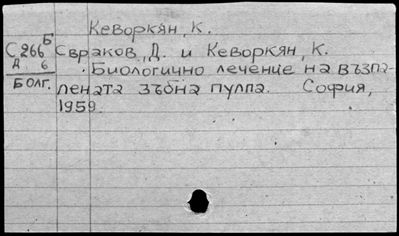 Кеворкян, К.
Б
С 266
Д 6
БОЛГ.
Свраков, Д. и Кеворкян, К.
Биологично лечение на възпа-
лената зъбна пулпа. София,
1959.